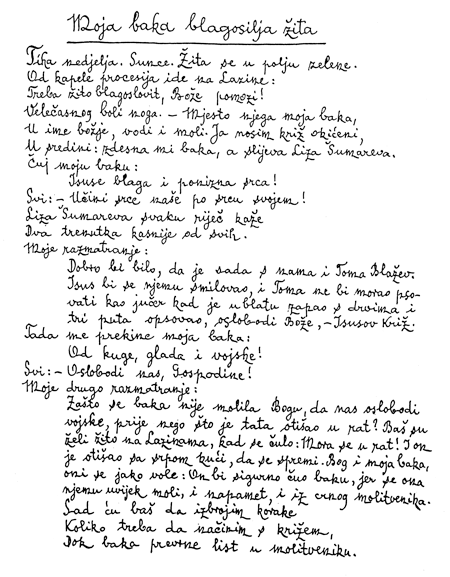 Moja baka blagosilja žita
Tiha nedjelja. Sunce. Žita se u polju zelene.
Od kapele procesija ide na Lazine:
Treba žito blagoslovit, Bože pomozi!
Velečasnog boli noga. – Mjesto njega moja baka,
U ime božje, vodi i moli. Ja nosim križ okićeni,
U sredini: zdesna mi baka, a slijeva Liza Šumareva.
Čuj moju baku:
Isuse blaga i ponizna srca!
Svi: – Učini srce naše po srcu svojem!
Liza Šumareva svaku riječ kaže
Dva trenutka kasnije od svih.
Moje razmatranje:
Dobro bi bilo, da je sada s nama i Toma Blažev.
Isus bi se njemu smilovao, i Toma ne bi morao pso-
vati kao jučer kad je u blatu zapao s drvima i
tri puta opsovao, oslobodi Bože, – Isusov Križ.
Tada me prekine moja baka:
Od kuge, glada i vojske!
Svi: – Oslobodi nas, Gospodine!
Moje drugo razmatranje:
Zašto se baka nije molila Bogu, da nas oslobodi
vojske, prije nego što je tata otišao u rat? Baš su
želi žito na Lazinama, kad se čulo: Mora se u rat! I on
je otišao sa srpom kući, da se spremi. Bog i moja baka,
oni se jako vole: On bi sigurno čuo baku, jer se ona
njemu uvijek moli, i napamet, i iz crnog molitvenika.
Sad ću baš da izbrojim korake
Koliko treba da načinim s križem,
Dok baka prevrne list u molitveniku.